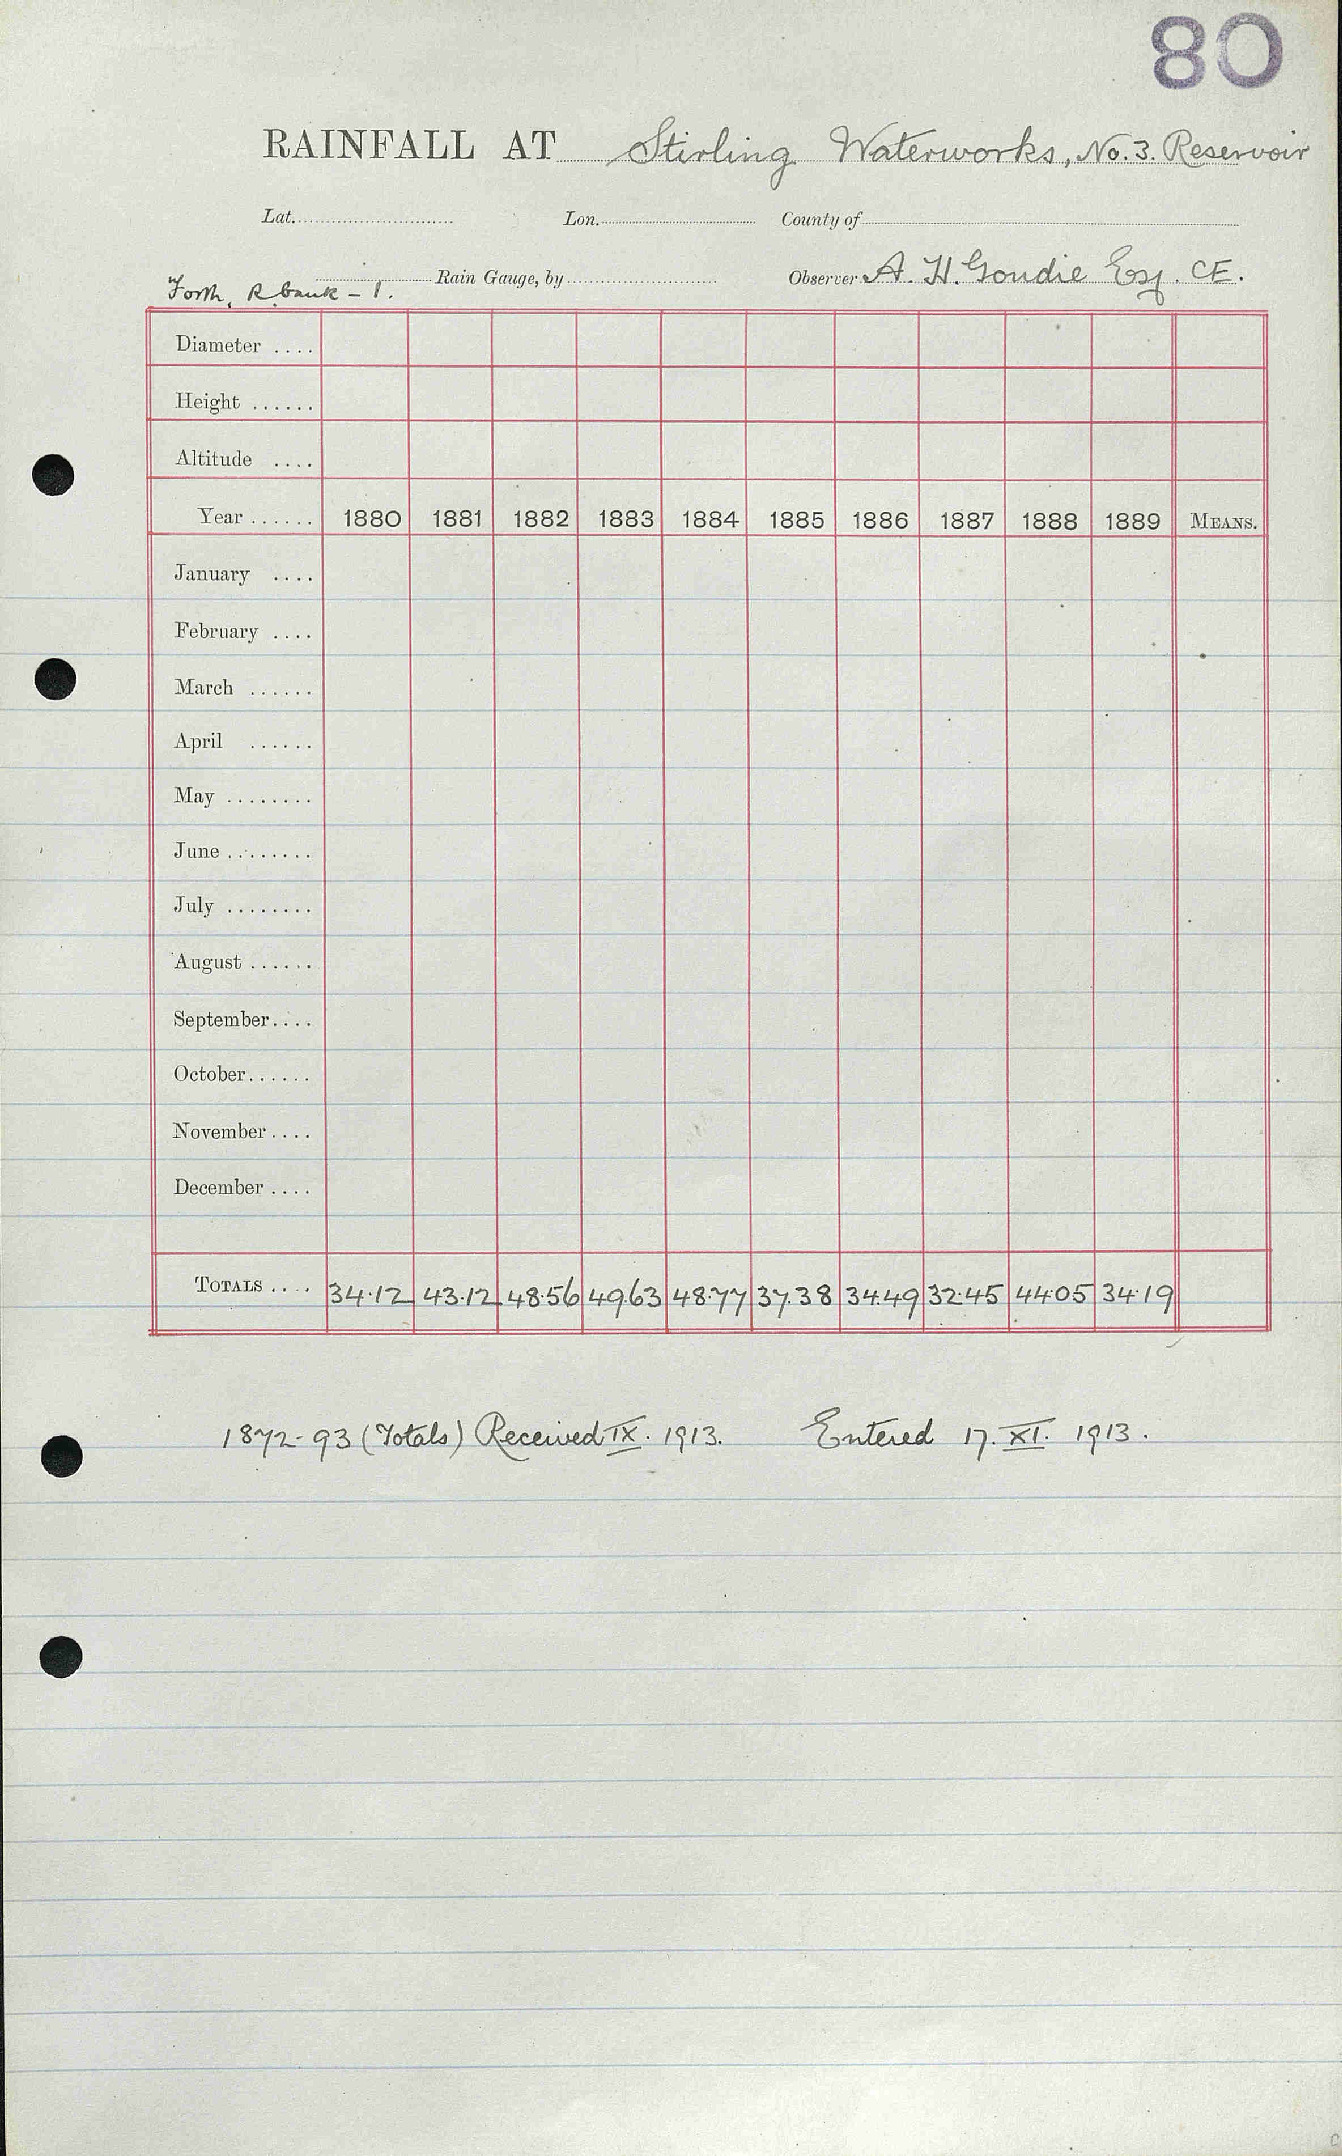 80
RAINFALL AT Stirling Waterworks, No. 3. Reservoir
Lat. Lon. County of
Forth, R bank - 1. Rain Gauge, by Observer A. H. Goudie Esq. CE.
Diameter ....
Height ......
Altitude ....
Year ...... 1880 1881 1882 1883 1884 1885 1886 1887 1888 1889 MEANS.
January ....
February ....
March ......
April ......
May ........
June ........
July ........
August ......
September....
October......
November....
December ....
TOTALS .... 34.12 43.12 48.56 49.63 48.77 37.38 34.49 32.45 44.05 34.19
1872-93 (Totals) Received IX. 1913. Entered 17. XI. 1913.